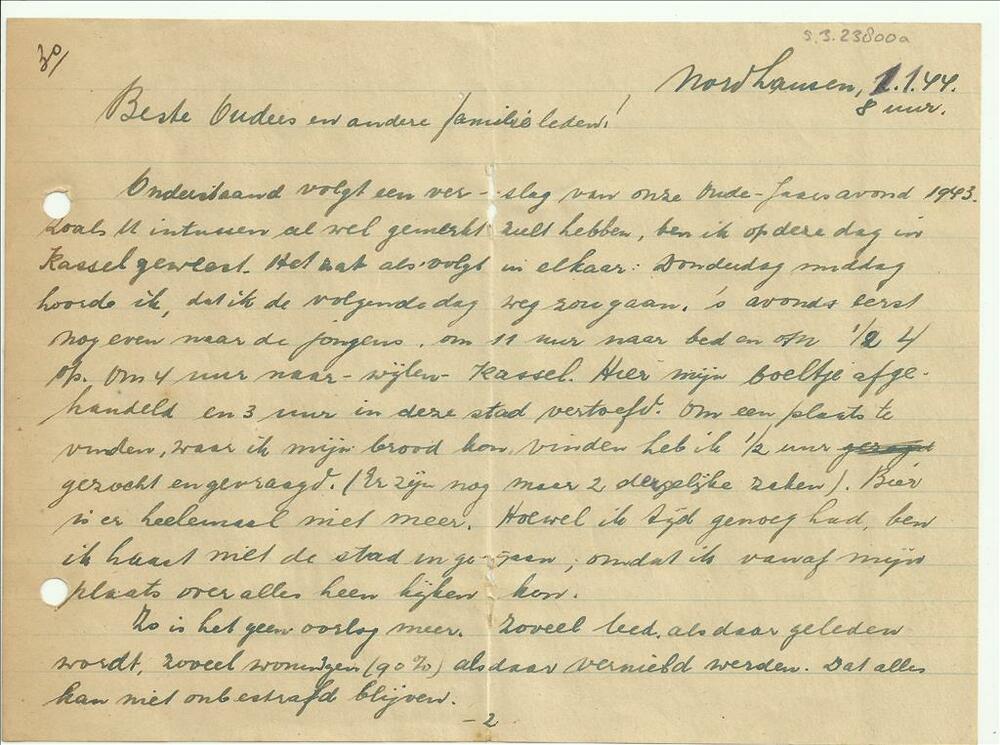 S.3.23800a
30/
Nordhausen, 1.1.44.
8 uur.
Beste Ouders en andere familieleden!
Onderstaand volgt een ver-slag van onze Oude-Jaarsavond 1943.
Zoals U intussen al wel gemerkt zult hebben, ben ik op deze dag in
Kassel geweest. Het zat als volgt in elkaar: Donderdag middag
hoorde ik, dat ik de volgende dag weg zou gaan. 's avonds eerst
nog even naar de jongens, om 11 uur naar bed en om 1/2 4
op. Om 4 uur naar - wijlen - Kassel. Hier mijn boeltje afge-
handeld en 3 uur in deze stad vertoefd. Om een plaats te
vinden, waar ik mijn brood kon vinden heb ik 1/2 uur
gezocht en gevraagd. (Er zijn nog maar 2 dergelijke zaken). Bier
is er heelemaal niet meer. Hoewel ik tijd genoeg had, ben
ik haast niet de stad in ge-gaan, omdat ik vanaf mijn
plaats over alles heen kijken kon.
Zo is het geen oorlog meer. Zoveel leed, als daar geleden
wordt, zoveel woningen (90%) als daar vernield werden. Dat alles
kan niet onbestrafd blijven.
- 2